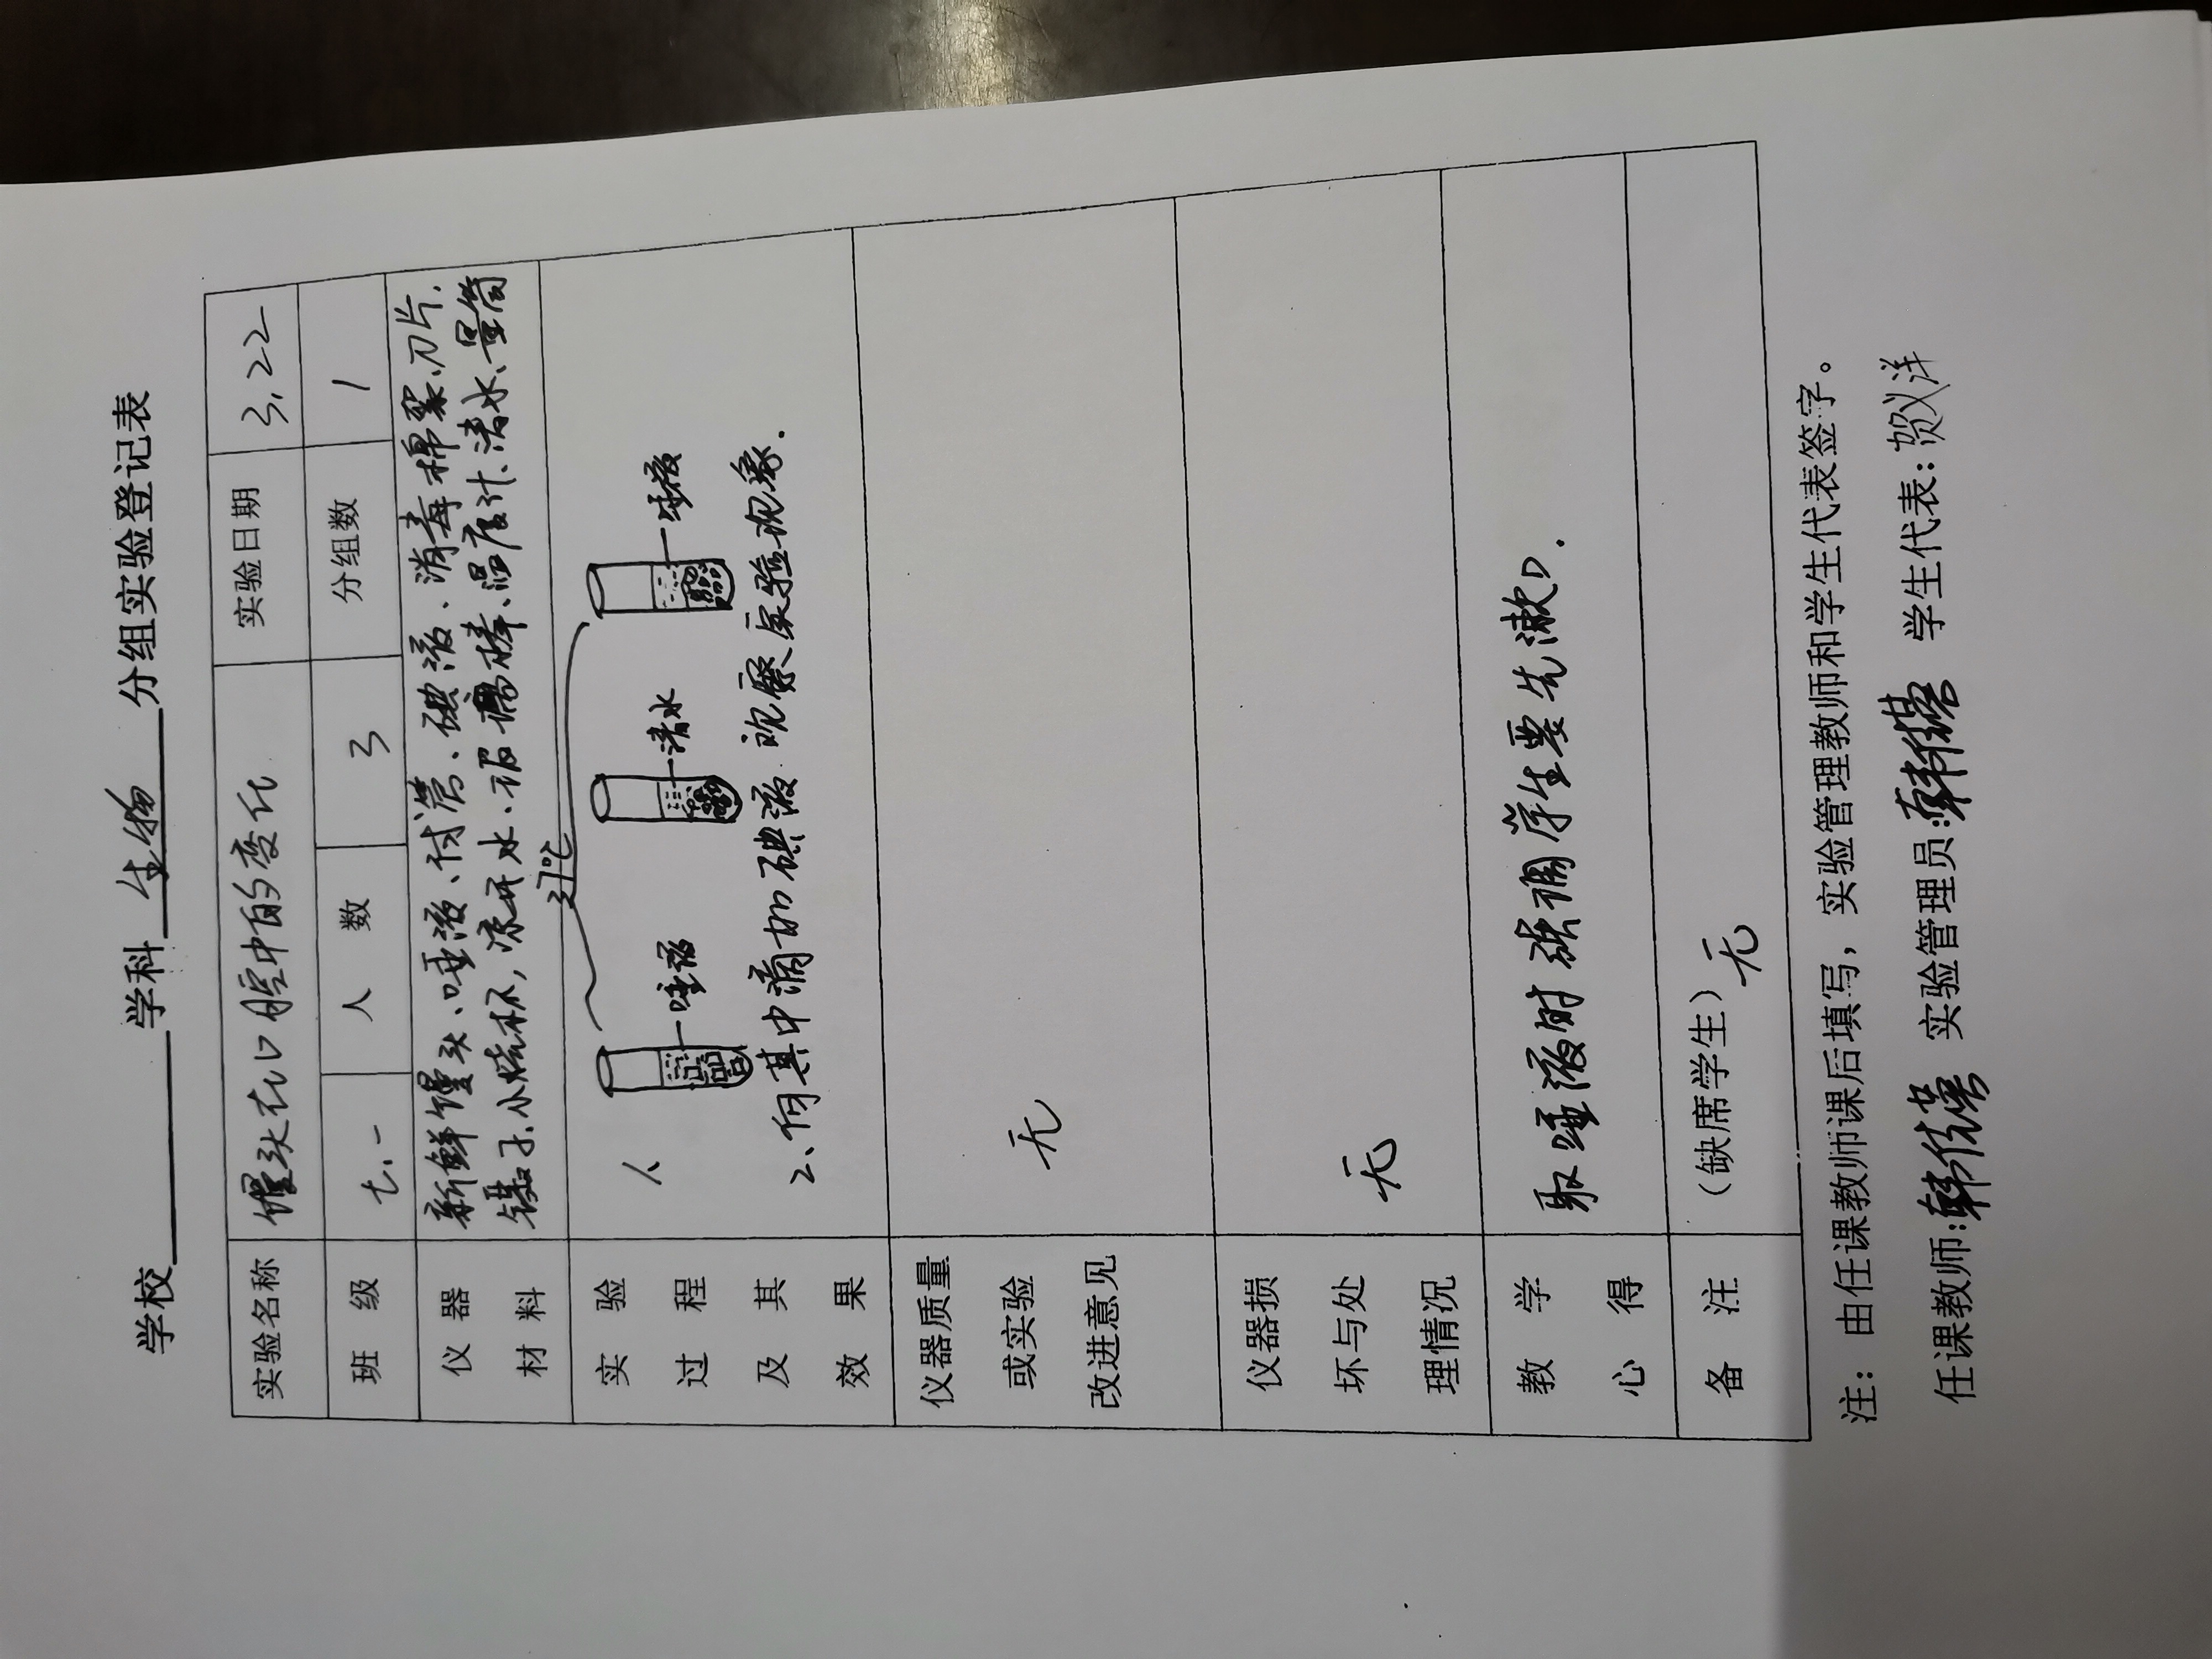 学校 学科 生物 分组实验登记表
实验名称 馒头在口腔中的变化 实验日期 3.22
班级 七.一 人数 3 分组数 1
仪器材料 新鲜馒头、唾液、试管、碘液、消毒棉絮、刀片、
镊子、小烧杯,凉开水、玻璃棒、温度计、清水、量筒
实验过程及其效果
37℃
1、 唾液 清水 唾液
2、向其中滴加碘液 观察实验现象.
仪器质量或实验改进意见 无
仪器损坏与处理情况 无
教学心得 取唾液时强调学生要先漱口.
备注 (缺席学生) 无
注: 由任课教师课后填写, 实验管理教师和学生代表签字。
任课教师: 韩 实验管理员: 韩 学生代表: 贺义洋